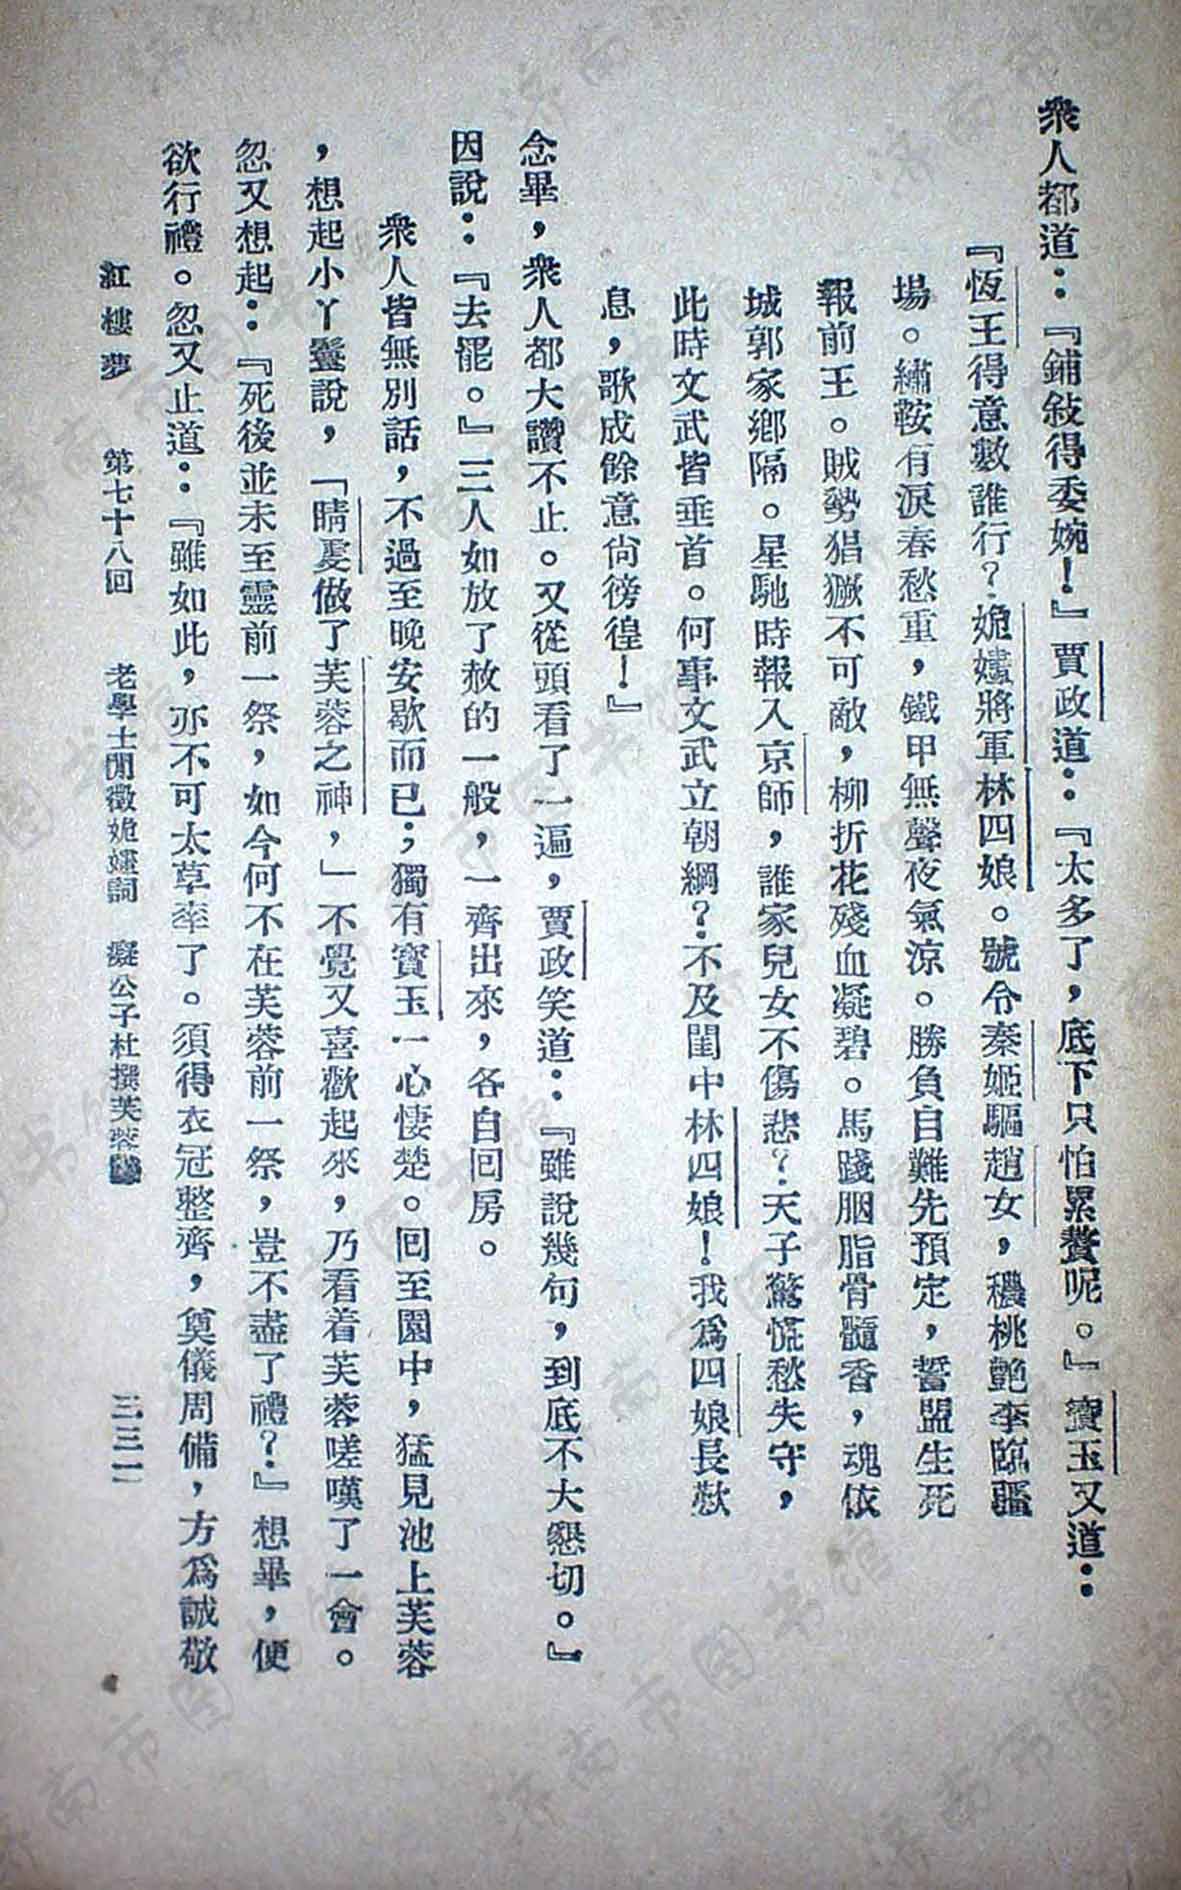 衆人都道：『鋪敍得委婉！』賈政道：『太多了，底下只怕累贅呢。』寶玉又道：
『恆王得意數誰行？姽嫿將軍林四娘。號令秦姬驅趙女，穠桃艷李臨疆
場。繡鞍有淚春愁重，鐵甲無聲夜氣涼。勝負自難先預定，誓盟生死
報前王。賊勢猖獗不可敵，柳折花殘血凝碧。馬踐胭脂骨髓香，魂依
城郭家鄉隔。星馳時報入京師，誰家兒女不傷悲？天子驚慌愁失守，
此時文武皆垂首。何事文武立朝綱？不及閨中林四娘！我爲四娘長歎
息，歌成餘意尙徬徨！』
念畢，衆人都大讚不止。又從頭看了一遍，賈政笑道：『雖說幾句，到底不大懇切。』
因說：『去罷。』三人如放了赦的一般，一齊出來，各自回房。
衆人皆無別話，不過至晚安歇而已；獨有寶玉一心悽楚。回至園中，猛見池上芙蓉
，想起小丫鬟說，「晴雯做了芙蓉之神，」不覺又喜歡起來，乃看着芙蓉嗟嘆了一會。
忽又想起：『死後並未至靈前一祭，如今何不在芙蓉前一祭，豈不盡了禮？』想畢，便
欲行禮。忽又止道：『雖如此，亦不可太草率了。須得衣冠整齊，奠儀周備，方爲誠敬
紅樓夢　第七十八回　老學士閒徵姽嫿詞　癡公子杜撰芙蓉誄　三三一
济南市图书馆